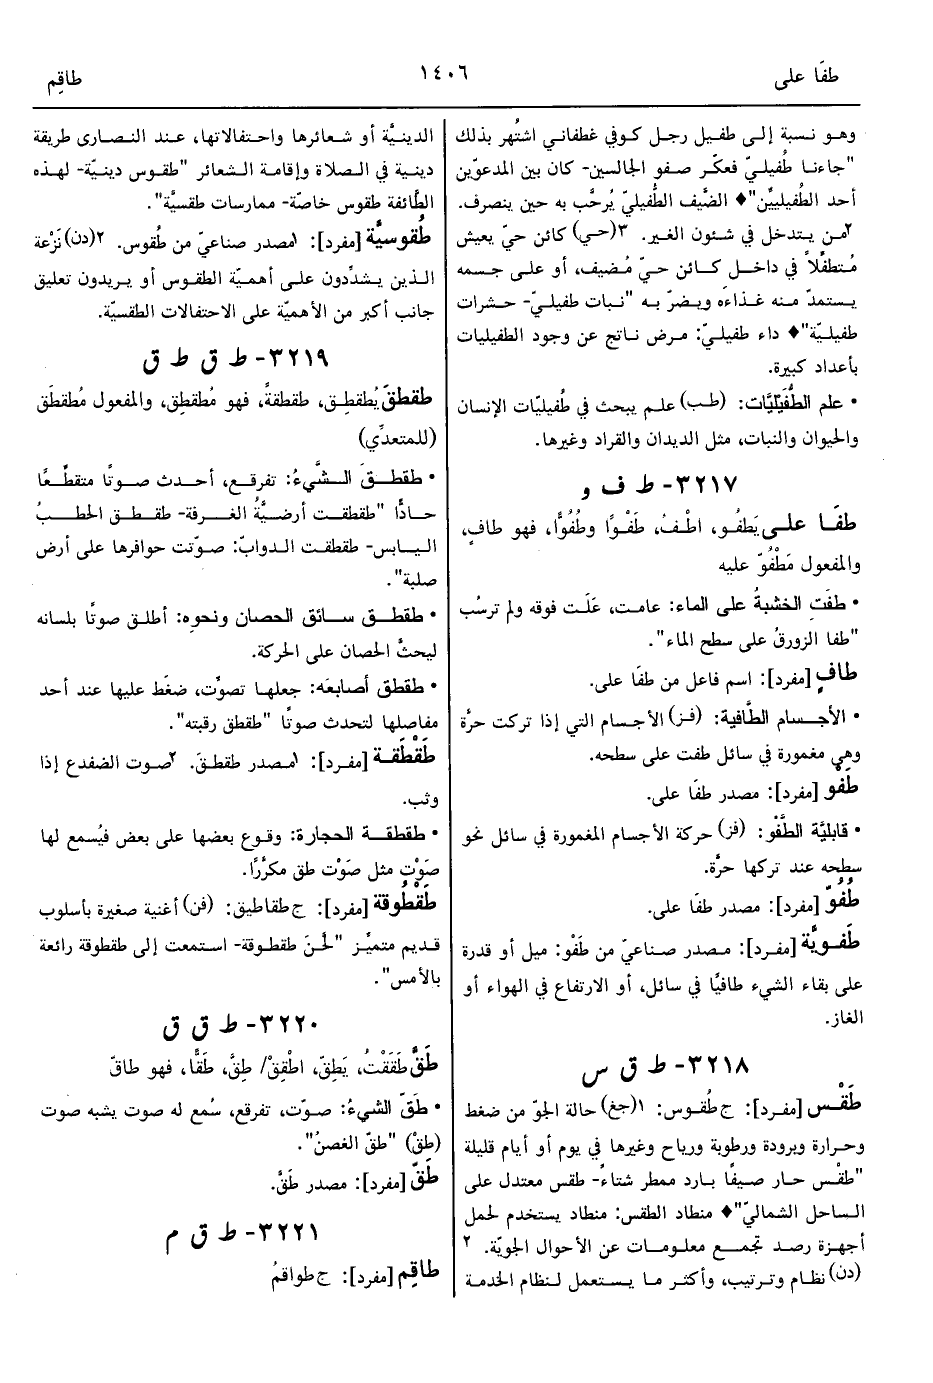 طفَا على
١٤٠٦
طاقِم
وهو نسبة إلى طفيل رجل كوفي غطفاني اشتُهر بذلك
"جاءنا طُفيليّ فعكّر صفو الجالسين- كان بين المدعوّين
أحد الطُفيليِّين"♦ الضَّيف الطُّفيليّ يُرحَّب به حين ينصرف.
٢من يتدخل في شئون الغير. ٣(حي) كائن حيّ يعيش
مُتطفِّلاً في داخل كائن حيّ مُضيف، أو على جسمه
يستمدّ منه غذاءه ويضرّ به "نبات طفيليّ- حشرات
طفيليّة"♦ داء طفيليّ: مرض ناتج عن وجود الطفيليات
بأعداد كبيرة.
• علم الطُّفَيْليَّات: (طب) علم يبحث في طُفيليّات الإنسان
والحيوان والنبات، مثل الديدان والقراد وغيرها.
٣٢١٧- ط ف و
طفَا على يَطفُو، اطْفُ، طَفْوًا وطُفُوًّا، فهو طافٍ،
والمفعول مَطْفُوّ عليه
• طفَتِ الخشبةُ على الماء: عامت، عَلَت فوقه ولم ترسُب
"طفا الزورقُ على سطح الماء".
طافٍ [مفرد]: اسم فاعل من طفَا على.
• الأجسام الطَّافية: (فز) الأجسام التي إذا تركت حرَّة
وهي مغمورة في سائل طفت على سطحه.
طَفْو [مفرد]: مصدر طفَا على.
• قابليَّة الطَّفْو: (فز) حركة الأجسام المغمورة في سائل نحو
سطحه عند تركها حرَّة.
طُفُوّ [مفرد]: مصدر طفَا على.
طَفْويَّة [مفرد]: مصدر صناعيّ من طَفْو: ميل أو قدرة
على بقاء الشيء طافيًا في سائل، أو الارتفاع في الهواء أو
الغاز.
٣٢١٨- ط ق س
طَقْس [مفرد]: ج طُقوس: ١(جغ) حالة الجوّ من ضغط
وحرارة وبرودة ورطوبة ورياح وغيرها في يوم أو أيام قليلة
"طقْس حار صيفًا بارد ممطر شتاءً- طقس معتدل على
الساحل الشماليّ"♦ منطاد الطقس: منطاد يستخدم لحمل
أجهزة رصد تجمع معلومات عن الأحوال الجويّة. ٢
(دن) نظام وترتيب، وأكثر ما يستعمل لنظام الخدمة
الدينيَّة أو شعائرها واحتفالاتها، عند النصارى طريقة
دينية في الصلاة وإقامة الشعائر "طقوس دينيّة- لهذه
الطّائفة طقوس خاصّة- ممارسات طقسيَّة".
طُقوسيَّة [مفرد]: ١مصدر صناعيّ من طُقوس. ٢(دن) نَزْعة
الذين يشدِّدون على أهميّة الطقوس أو يريدون تعليق
جانب أكبر من الأهميّة على الاحتفالات الطقسيّة.
٣٢١٩- ط ق ط ق
طقطقَ يُطقطِق، طقطقةً، فهو مُطقطِق، والمفعول مُطقطَق
(للمتعدِّي)
• طقطقَ الشَّيءُ: تفرقع، أحدث صوتًا متقطِّعًا
حادًّا "طقطقت أرضيَّةُ الغرفة- طقطق الحطبُ
اليابس- طقطقت الدوابّ: صوّتت حوافرها على أرض
صلبة".
• طقطق سائق الحصان ونحوه: أطلق صوتًا بلسانه
ليحثَّ الحصان على الحركة.
• طقطق أصابعَه: جعلها تصوِّت، ضغَط عليها عند أحد
مفاصلها لتحدث صوتًا "طقطق رقبته".
طَقْطَقة [مفرد]: ١مصدر طقطقَ. ٢صوت الضفدع إذا
وثب.
• طقطقة الحجارة: وقوع بعضها على بعض فيُسمع لها
صَوْت مثل صَوْت طق مكرَّرًا.
طَقْطُوقة [مفرد]: ج طقاطيق: (فن) أغنية صغيرة بأسلوب
قديم متميِّز "لحنَ طقطوقة- استمعت إلى طقطوقة رائعة
بالأمس".
٣٢٢٠- ط ق ق
طَقَّ طَقَقْتُ، يَطِقّ، اطْقِقْ/ طِقَّ، طَقًّا، فهو طاقّ
• طَقّ الشيءُ: صوّت، تفرقع، سُمع له صوت يشبه صوت
(طقْ) "طقّ الغصنُ".
طَقّ [مفرد]: مصدر طَقَّ.
٣٢٢١- ط ق م
طاقِم [مفرد]: ج طواقمُ